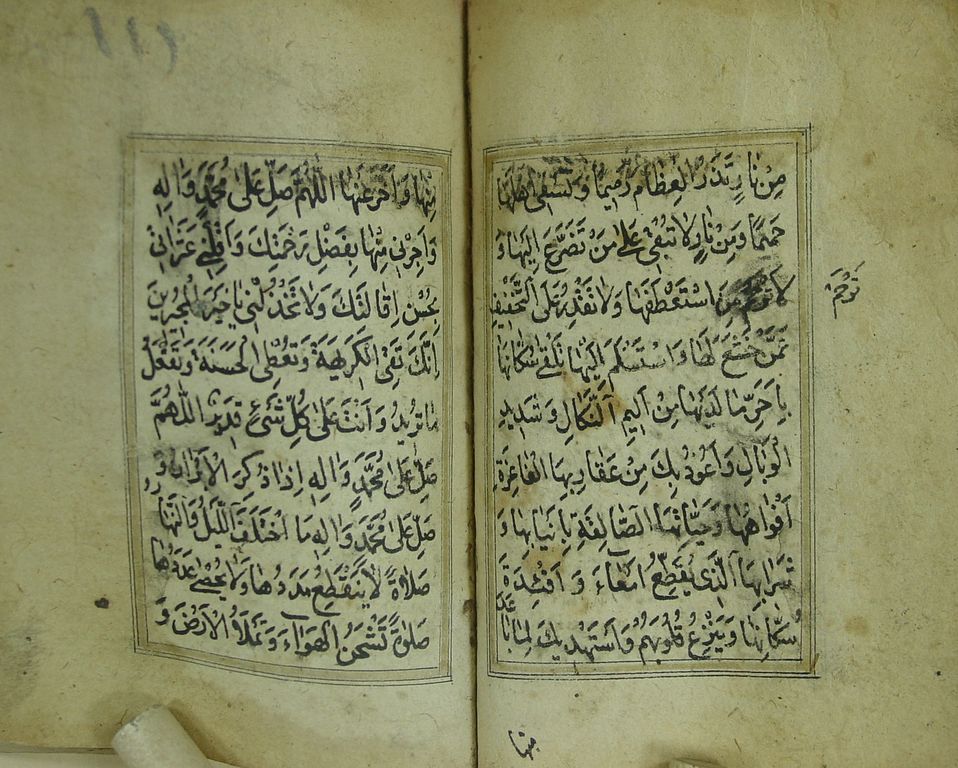 مِنْ نَارٍ تَذَرُ الْعِظَامَ رَمِيمًا وَتَسْقِي أَهْلَهَا
حَمِيمًا وَمِنْ نَارٍ لَا تُبْقِي عَلَى مَنْ تَضَرَّعَ إِلَيْهَا وَ
لَا تَرْحَمُ مَنِ اسْتَعْطَفَهَا وَلَا تَقْدِرُ عَلَى التَّخْفِيفِ
ترحم
عَمَّنْ خَشَعَ لَهَا وَاسْتَسْلَمَ إِلَيْهَا تَلْقَى سُكَّانَهَا
بِأَحَرِّ مَا لَدَيْهَا مِنْ أَلِيمِ النَّكَالِ وَشَدِيدِ
الْوَبَالِ وَأَعُوذُ بِكَ مِنْ عَقَارِبِهَا الْفَاغِرَةِ
أَفْوَاهُهَا وَحَيَّاتِهَا الصَّالِقَةِ بِأَنْيَابِهَا وَ
شَرَابِهَا الَّذِي يُقَطِّعُ أَمْعَاءَ وَأَفْئِدَةَ
سُكَّانِهَا وَيَنْزِعُ قُلُوبَهُمْ وَأَسْتَهْدِيكَ لِمَا بَاعَدَ
منها
مِنْهَا وَأَخَّرَ عَنْهَا اللَّهُمَّ صَلِّ عَلَى مُحَمَّدٍ وَآلِهِ
وَأَجِرْنِي مِنْهَا بِفَضْلِ رَحْمَتِكَ وَأَقِلْنِي عَثَرَاتِي
بِحُسْنِ إِقَالَتِكَ وَلَا تَخْذُلْنِي يَا خَيْرَ الْمُجِيرِينَ
إِنَّكَ تَقِي الْكَرِيهَةَ وَتُعْطِي الْحَسَنَةَ وَتَفْعَلُ
مَا تُرِيدُ وَأَنْتَ عَلَى كُلِّ شَيْءٍ قَدِيرٌ اللَّهُمَّ
صَلِّ عَلَى مُحَمَّدٍ وَآلِهِ إِذَا ذُكِرَ الْأَبْرَارُ وَ
صَلِّ عَلَى مُحَمَّدٍ وَآلِهِ مَا اخْتَلَفَ اللَّيْلُ وَالنَّهَارُ
صَلَاةً لَا يَنْقَطِعُ مَدَدُهَا وَلَا يُحْصَى عَدَدُهَا
صَلٰوةً تَشْحَنُ الْهَوَاءَ وَتَمْلَأُ الْأَرْضَ وَ